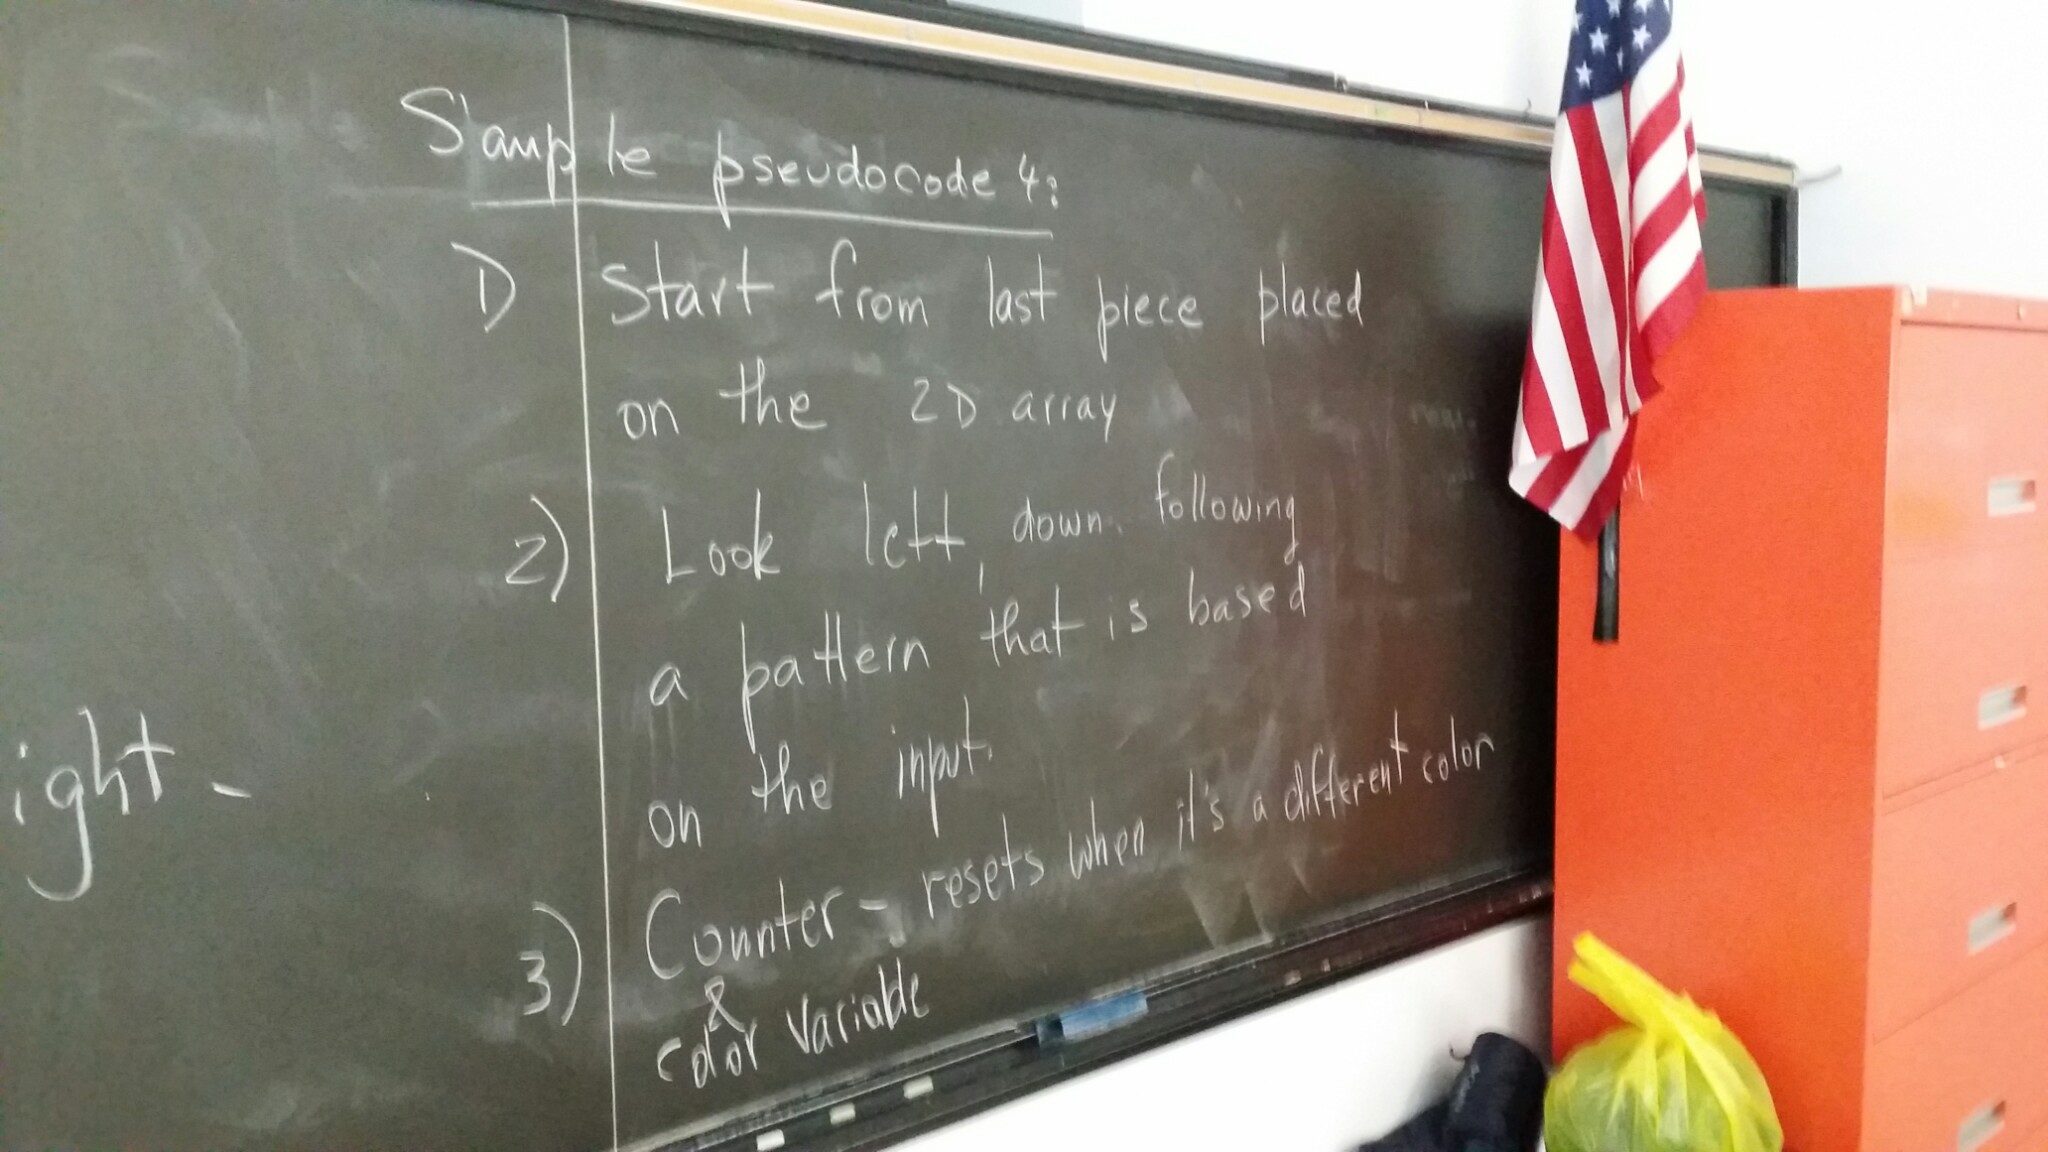 Sample pseudocode 4:
1) Start from last piece placed
on the 2D array
2) Look left, down. following
a pattern that is based
on the input.
3) Counter - resets when it's a different color
&
color variable
ight -